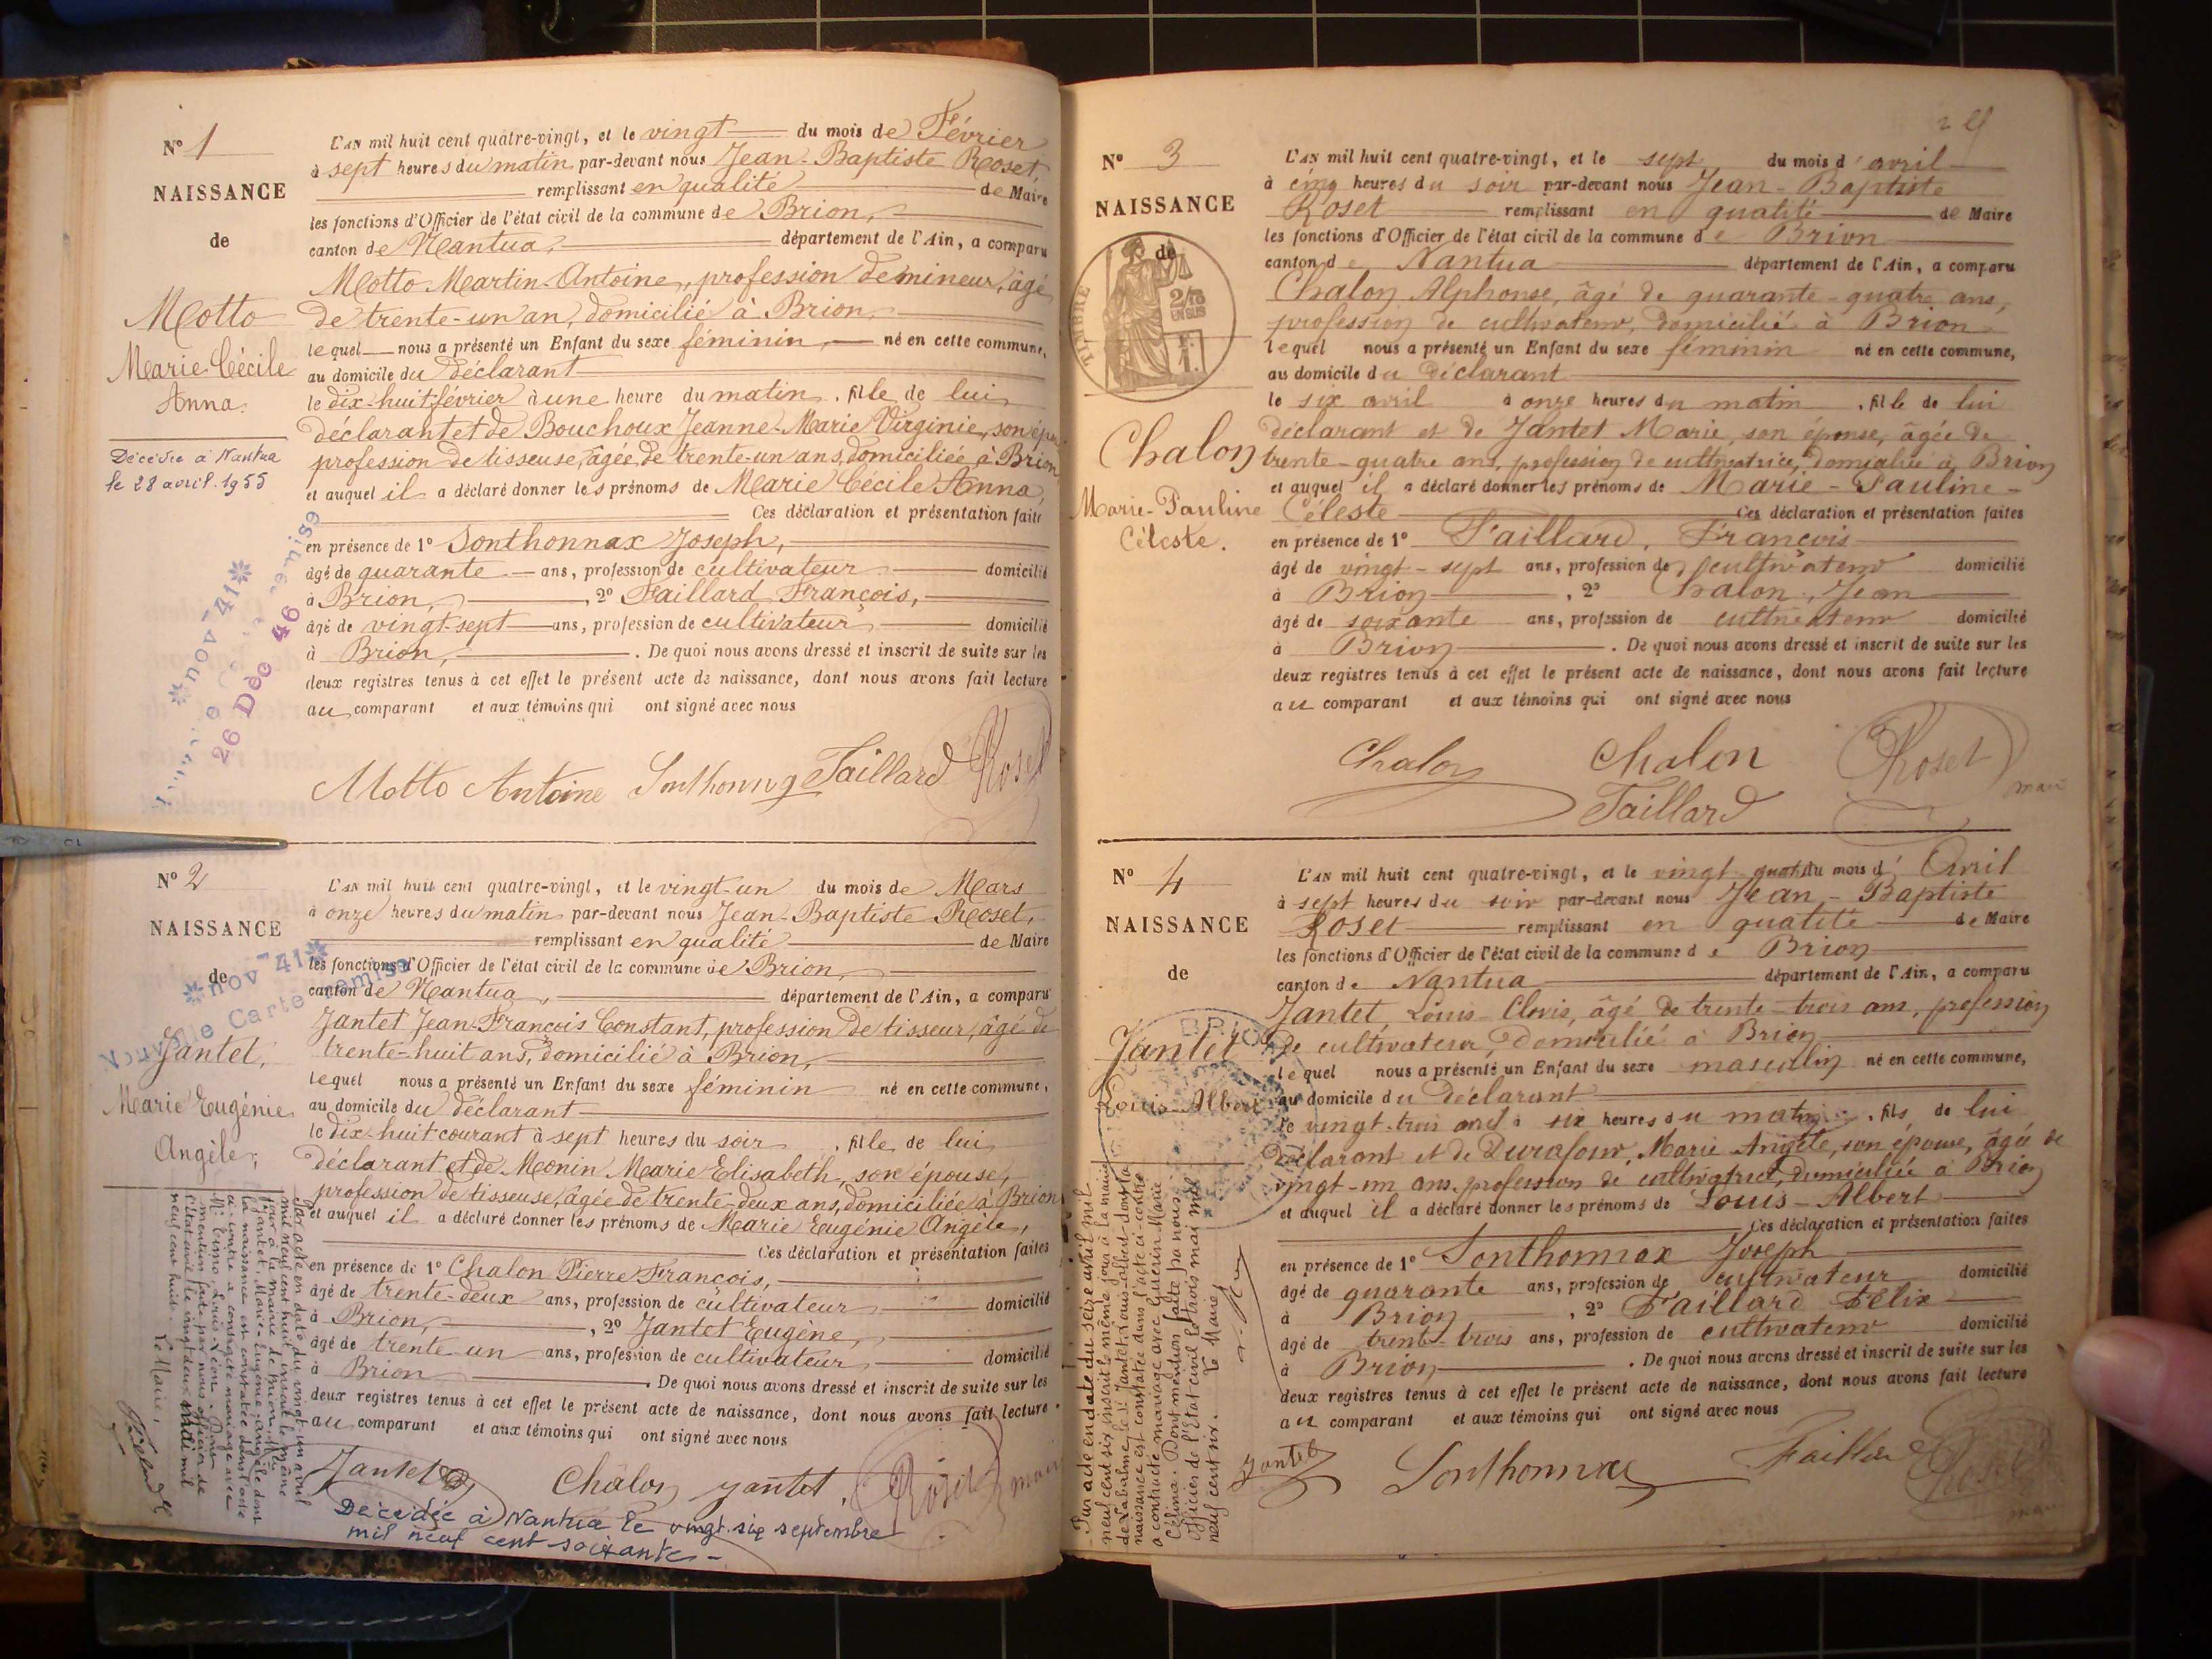 N° 1
NAISSANCE
de
Motto
Marie Cécile
Anna.
Décédée à Nantua
le 28 avril 1955
L'AN mil huit cent quatre-vingt, et le vingt du mois de Février
à sept heures du matin par-devant nous Jean-Baptiste Roset,
remplissant en qualité de Maire
les fonctions d'Officier de l'état civil de la commune de Brion,
canton de Nantua, département de l'Ain, a comparu
Motto Martin-Antoine, profession de mineur, âgé
de trente-un an, domicilié à Brion,
lequel nous a présenté un Enfant du sexe féminin, né en cette commune,
au domicile du déclarant
le dix-huit février à une heure du matin, fille de lui
déclarant et de Bouchoux Jeanne-Marie Virginie, son
profession de tisseuse, âgée de trente-un ans, domiciliée à Brion
et auquel il a déclaré donner les prénoms de Marie Cécile Anna,
Ces déclaration et présentation faites
en présence de 1° Sonthonnax Joseph,
âgé de quarante ans, profession de cultivateur domicilié
à Brion, , 2° Faillard François,
âgé de vingt-sept ans, profession de cultivateur, domicilié
à Brion, . De quoi nous avons dressé et inscrit de suite sur les
deux registres tenus à cet effet le présent acte de naissance, dont nous avons fait lecture
au comparant et aux témoins qui ont signé avec nous
nov 41
26 Déc 46
Motto Antoine Sonthonnax Faillard Roset
N° 2
NAISSANCE
de
nov 41
Nouvelle Carte remise
Jantet,
Marie Eugénie
Angèle,
L'AN mil huit cent quatre-vingt, et le vingt-un du mois de Mars
à onze heures du matin par-devant nous Jean-Baptiste Roset,
remplissant en qualité de Maire
les fonctions d'Officier de l'état civil de la commune de Brion,
canton de Nantua, département de l'Ain, a comparu
Jantet Jean-François Constant, profession de tisseur, âgé de
trente-huit ans, domicilié à Brion,
lequel nous a présenté un Enfant du sexe féminin né en cette commune,
au domicile du déclarant
le dix-huit courant à sept heures du soir, fille de lui
déclarant et de Monin Marie Elisabeth, son épouse,
profession de tisseuse, âgée de trente-deux ans, domiciliée à Brion
et auquel il a déclaré donner les prénoms de Marie Eugénie Angèle,
Ces déclaration et présentation faites
en présence de 1° Chalon Pierre François,
âgé de trente-deux ans, profession de cultivateur domicilié
à Brion, , 2° Jantet Eugène,
âgé de trente-un ans, profession de cultivateur domicilié
à Brion . De quoi nous avons dressé et inscrit de suite sur les
deux registres tenus à cet effet le présent acte de naissance, dont nous avons fait lecture
au comparant et aux témoins qui ont signé avec nous
Par acte en date du vingt un avril
mil neuf cent huit inscrit le même
jour à la mairie de Brion,
Jantet, Marie-Eugénie-Angèle dont
la naissance est constatée dans l'acte
ci-contre a contracté mariage avec
Louis Léon. Dont
mention faite par nous officier de
l'état civil le vingt deux mai mil
neuf cent huit.
Le Maire,
Jantet Chalon Jantet, Roset maire
Décédée à Nantua le vingt six septembre
mil neuf cent soixante -
N° 3
NAISSANCE
de
TIMBRE
2/10
EN SUS
Chalon
Marie-Pauline
Céleste.
L'AN mil huit cent quatre-vingt, et le sept du mois d'avril
à cinq heures du soir par-devant nous Jean-Baptiste
Roset remplissant en qualité de Maire
les fonctions d'Officier de l'état civil de la commune de Brion
canton de Nantua département de l'Ain, a comparu
Chalon Alphonse, âgé de quarante-quatre ans,
profession de cultivateur, domicilié à Brion
lequel nous a présenté un Enfant du sexe féminin né en cette commune,
au domicile du déclarant
le six avril à onze heures du matin, fille de lui
déclarant et de Jantet Marie, son épouse, âgée de
trente-quatre ans, profession de cultivatrice, domiciliée à Brion
et auquel il a déclaré donner les prénoms de Marie-Pauline-
Céleste Ces déclaration et présentation faites
en présence de 1° Faillard, François
âgé de vingt-sept ans, profession de cultivateur domicilié
à Brion , 2° Chalon, Jean
âgé de soixante ans, profession de cultivateur domicilié
à Brion . De quoi nous avons dressé et inscrit de suite sur les
deux registres tenus à cet effet le présent acte de naissance, dont nous avons fait lecture
au comparant et aux témoins qui ont signé avec nous
Chalon Chalon Roset
Faillard maire
N° 4
NAISSANCE
de
BRION
Jantet
Louis-Albert
L'AN mil huit cent quatre-vingt, et le vingt quatre du mois d'Avril
à sept heures du soir par-devant nous Jean-Baptiste
Roset remplissant en qualité de Maire
les fonctions d'Officier de l'état civil de la commune de Brion
canton de Nantua département de l'Ain, a comparu
Jantet, Louis-Clovis, âgé de trente-trois ans, profession
de cultivateur, domicilié à Brion
lequel nous a présenté un Enfant du sexe masculin né en cette commune,
au domicile du déclarant
le vingt-trois avril à six heures du matin, fils de lui
déclarant et de Durafour, Marie Angèle, son épouse, âgée de
vingt-un ans, profession de cultivatrice, domiciliée à Brion
et auquel il a déclaré donner les prénoms de Louis-Albert
Ces déclaration et présentation faites
en présence de 1° Sonthonnax Joseph
âgé de quarante ans, profession de cultivateur domicilié
à Brion , 2° Faillard Félix
âgé de trente-trois ans, profession de cultivateur domicilié
à Brion . De quoi nous avons dressé et inscrit de suite sur les
deux registres tenus à cet effet le présent acte de naissance, dont nous avons fait lecture
au comparant et aux témoins qui ont signé avec nous
Par acte en date du seize avril mil
neuf cent six inscrit le même jour à la mairie
de Labalme, le Sr Jantet Louis-Albert dont la
naissance est constatée dans l'acte ci-contre
a contracté mariage avec Guérin Marie
Célina. Dont mention faite par nous
Officier de l'Etat civil le trois mai mil
neuf cent six. Le Maire,
Jantet Sonthonnax Faillard Roset
maire